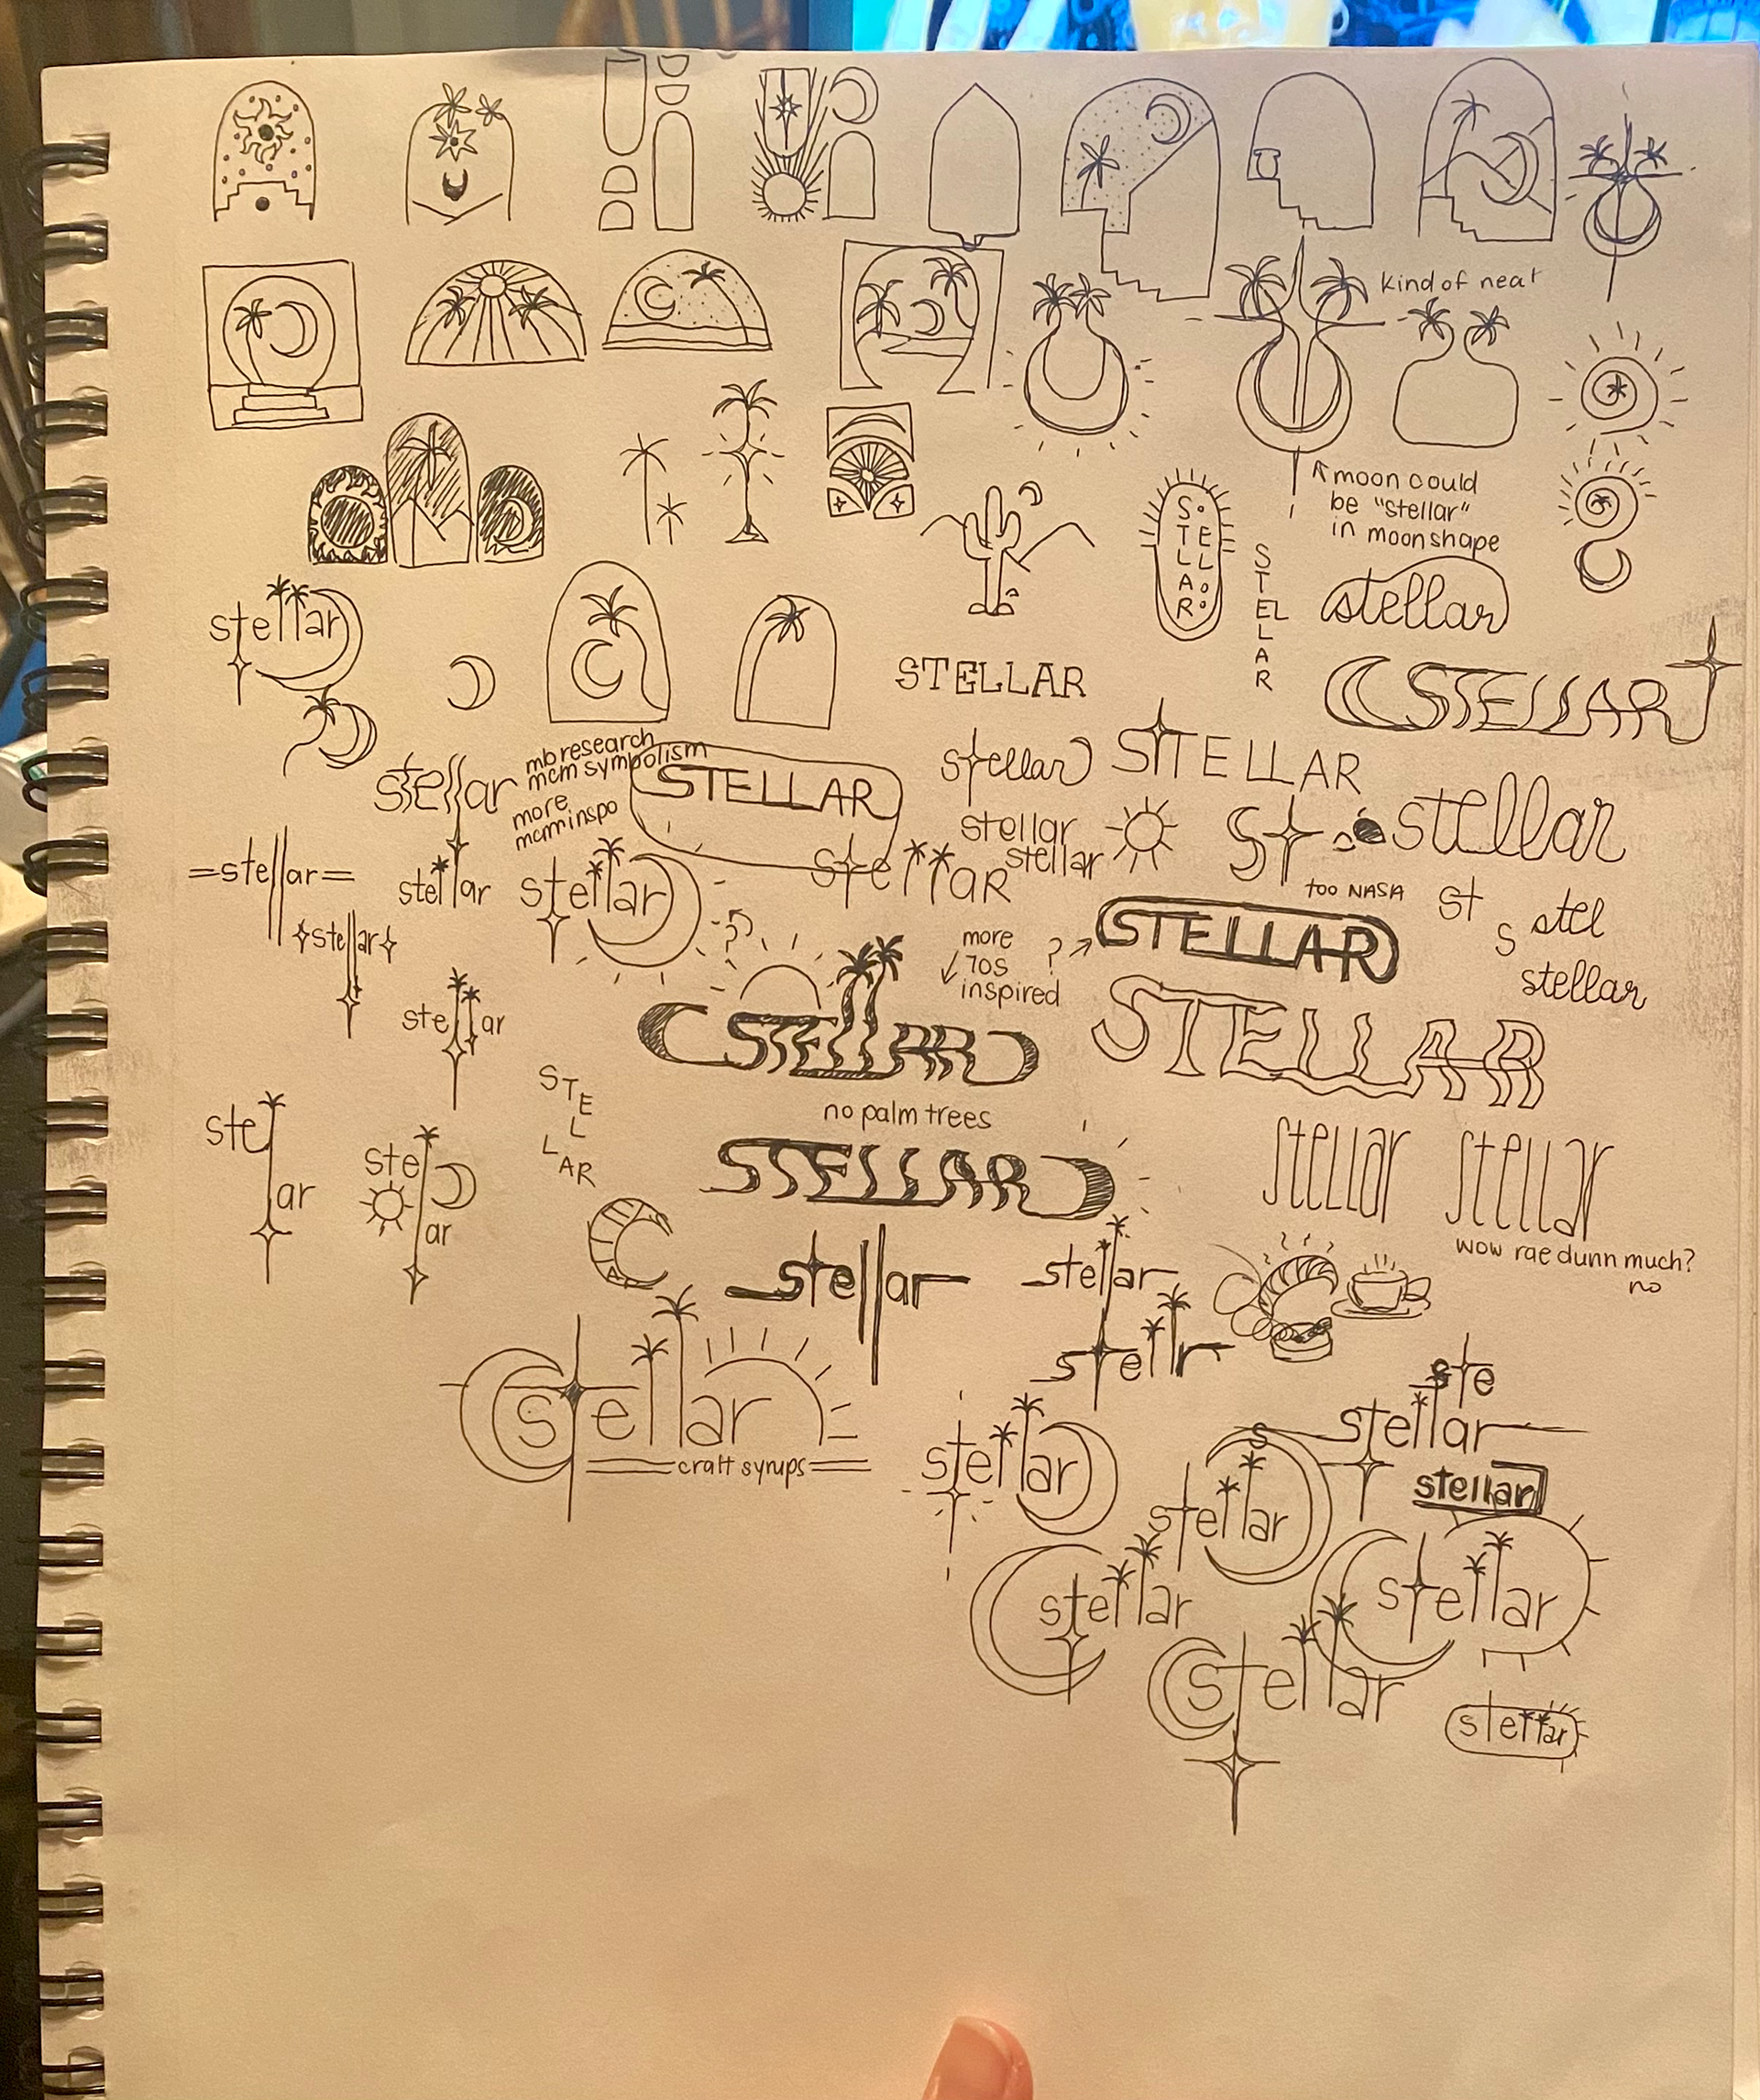 kind of neat
moon could
be "stellar"
in moon shape
S
T
E
L
L
A
R
S
T
E
L
L
A
R
stellar
stellar
STELLAR
STELLAR
mb research
mcm symbolism
more
mcm inspo
stellar
STELLAR
stellar
STELLAR
stellar
stellar
stellar
st
stellar
too NASA
=stellar=
stellar
stellar
stellar
st
stel
s
stellar
stellar
more
70s
inspired
?
STELLAR
?
stellar
STELLAR
STELLAR
no palm trees
STELLAR
S
T
E
L
L
AR
ste
ar
ste
ar
stellar
stellar
wow rae dunn much?
no
stellar
stellar
stellr
stellar
craft syrups
ste
stellar
stellar
stellar
s
stellar
stellar
stellar
stellar
stellar